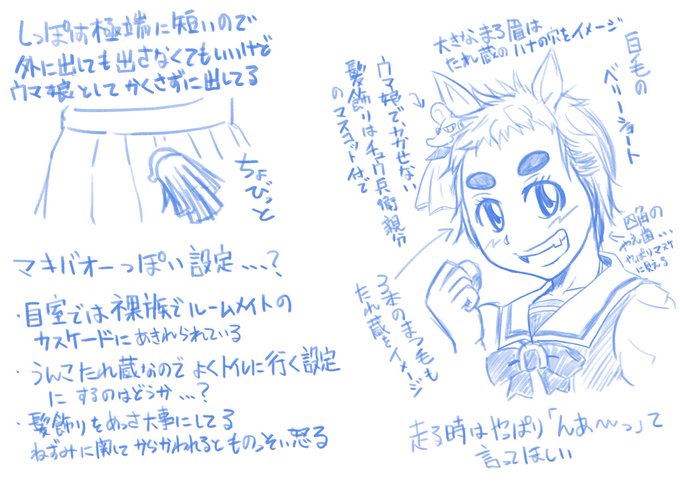 しっぽは極端に短いので
外に出しても出さなくてもいいけど
ウマ娘としてかくさずに出してる
ちょびっと
マキバオーっぽい設定…?
・自室では裸族でルームメイトの
カスケードにあきれられている
・うんこたれ蔵なのでよくトイレに行く設定
にするのはどうか…?
・髪飾りをめっさ大事にしてる
ねずみに関してからかわれるとものっそい怒る
大きなまる眉は
たれ蔵のハナの穴をイメージ
白毛の
ベリーショート
ウマ娘でかかせない
髪飾りはチュウ兵衛親分
のマスコット付で
四角の
やえ歯…
やっぱりマスケ
に見える
3本のまつ毛も
たれ蔵をイメージ
走る時はやっぱり「んあ〜っ」て
言ってほしい